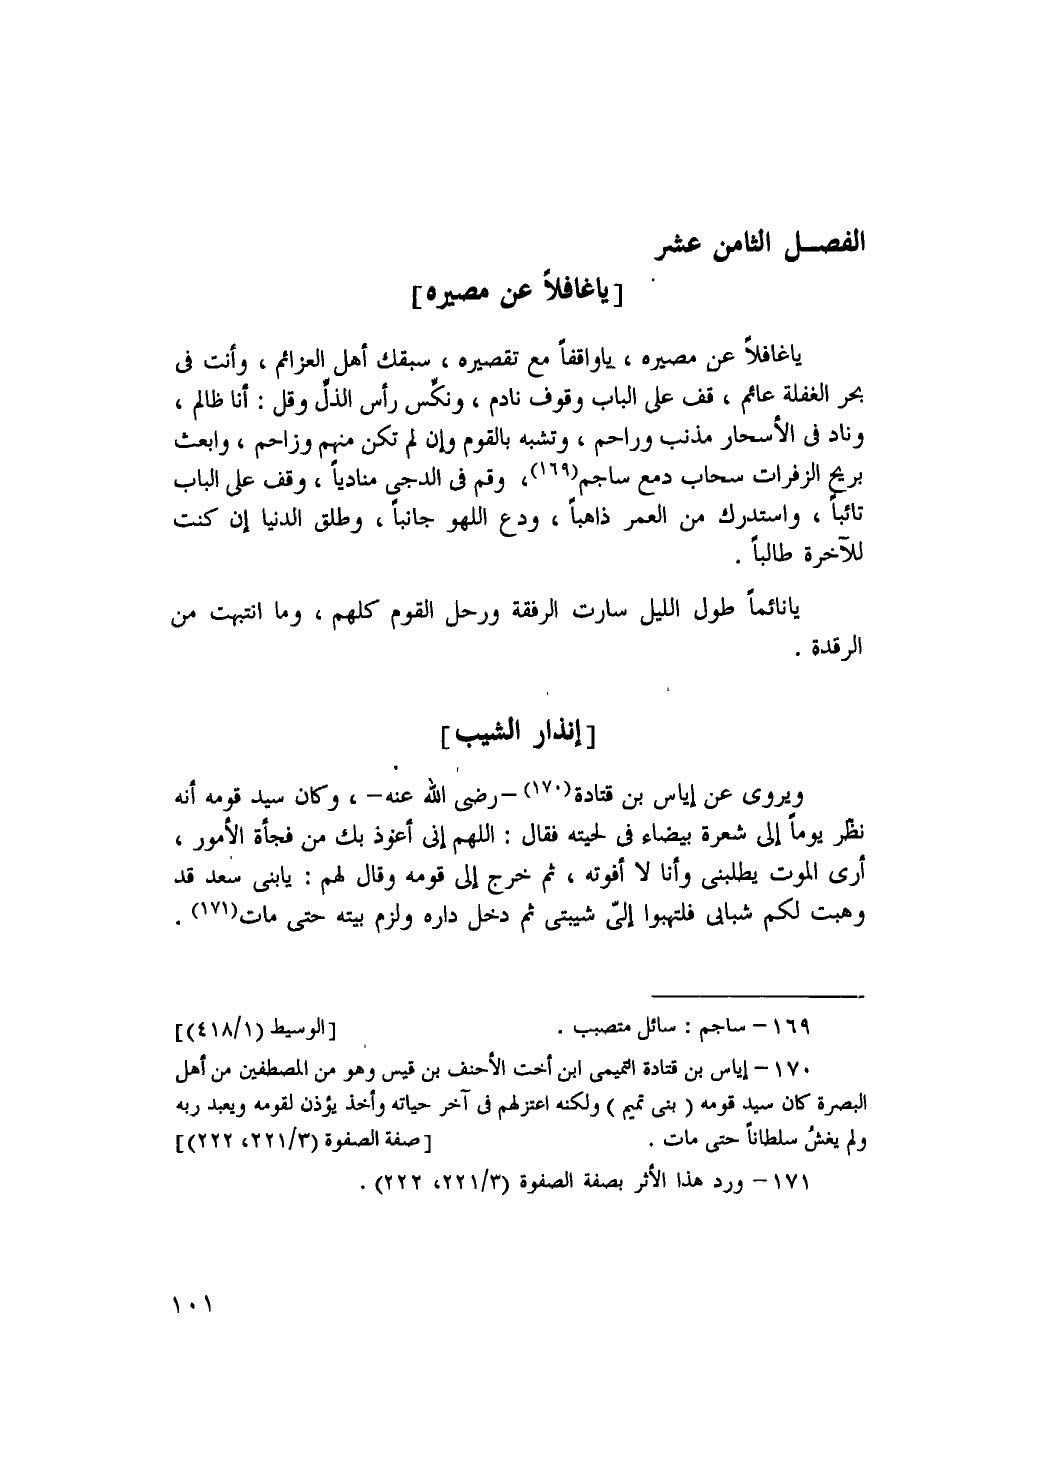 الفصـل الثامن عشر
[ياغافلاً عن مصيره]
ياغافلاً عن مصيره ، ياواقفاً مع تقصيره ، سبقك أهل العزائم ، وأنت فى
بحر الغفلة عائم ، قف على الباب وقوف نادم ، ونكِّس رأس الذلِّ وقل : أنا ظالم ،
وناد فى الأسحار مذنب وراحم ، وتشبه بالقوم وإن لم تكن منهم وزاحم ، وابعث
بريح الزفرات سحاب دمع ساجم(١٦٩)، وقم فى الدجى منادياً ، وقف على الباب
تائباً ، واستدرك من العمر ذاهباً ، ودع اللهو جانباً ، وطلق الدنيا إن كنت
للآخرة طالباً .
يانائماً طول الليل سارت الرفقة ورحل القوم كلهم ، وما انتبهت من
الرقدة .
[إنذار الشيب]
ويروى عن إياس بن قتادة(١٧٠) –رضى الله عنه– ، وكان سيد قومه أنه
نظر يوماً إلى شعرة بيضاء فى لحيته فقال : اللهم إنى أعوذ بك من فجأة الأمور ،
أرى الموت يطلبنى وأنا لا أفوته ، ثم خرج إلى قومه وقال لهم : يابنى سعد قد
وهبت لكم شبابى فلتهبوا إلىّ شيبتى ثم دخل داره ولزم بيته حتى مات(١٧١) .
١٦٩– ساجم : سائل متصبب . [الوسيط (٤١٨/١)]
١٧٠– إياس بن قتادة التميمى ابن أخت الأحنف بن قيس وهو من المصطفين من أهل
البصرة كان سيد قومه ( بنى تميم ) ولكنه اعتزلهم فى آخر حياته وأخذ يؤذن لقومه ويعبد ربه
ولم يغشُ سلطاناً حتى مات . [صفة الصفوة (٢٢١/٣، ٢٢٢)]
١٧١– ورد هذا الأثر بصفة الصفوة (٢٢١/٣، ٢٢٢) .
١٠١